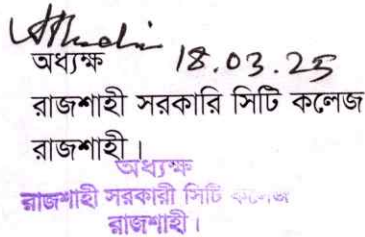 অধ্যক্ষ 18.03.25
রাজশাহী সরকারি সিটি কলেজ
রাজশাহী।
অধ্যক্ষ
রাজশাহী সরকারী সিটি কলেজ
রাজশাহী।